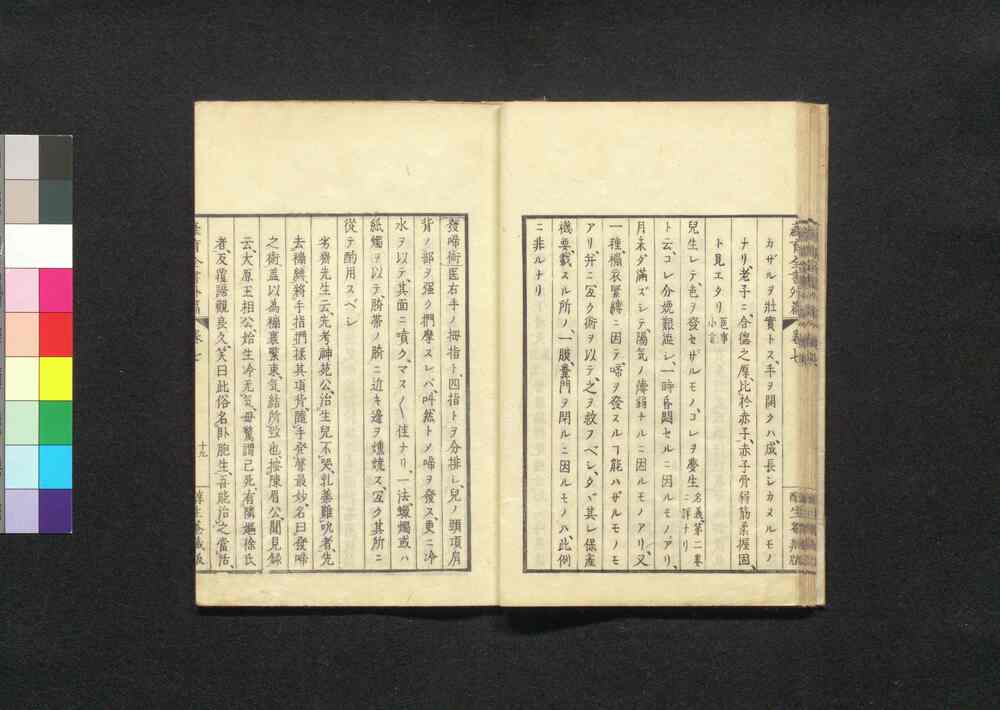 カザルヲ壯實トス、手ヲ開クハ、成長シカヌルモノ
ナリ、老子ニ、含德之厚、比於赤子、赤子骨弱筋柔握固、
ト見エタリ
兒生レテ、色ヲ發セザルモノ、コレヲ夢生 名義第二卷ニ詳ナリ
ト云、コレ分娩艱澁シ、一時昏悶セルニ因ルモノアリ、
月未ダ滿ズシテ、陽氣ノ薄弱ナルニ因ルモノアリ、又
一種襁衣緊縛ニ因テ、啼ヲ發スルヿ能ハザルモノモ
アリ、幷ニ宜ク術ヲ以テ、之ヲ救フベシ、タヾ其レ保產
機要、載スル所ノ、一膜糞門ヲ閉ルニ因ルモノハ、此例
ニ非ルナリ
發啼術 医右手ノ拇指ト、四指トヲ分排シ、兒ノ頸項肩
背ノ部ヲ强ク捫摩スレバ、呌然トノ啼ヲ發ス、更ニ冷
水ヲ以テ、其面ニ噴ク、マス〱佳ナリ、一法、蠟燭或ハ
紙燭ヲ以テ、臍帶ノ臍ニ近キ邊ヲ燻燒ス、宜ク其所ニ
從テ酌用スベシ
劣齋先生云、先考神苑公、治生兒不哭、乳甚難吮者、先
去襁縛、將手指捫揉其項背、隨手發聲最妙、名曰發啼
之術、蓋以為襁裹緊束、氣結所致也、按陳眉公、聞見錄
云、大原王相公、始生冷无氣、母驚謂已死、有隣嫗徐氏
者、反覆諦觀良久、笑曰、此俗名臥胞生、吾能治之當活、
卷七
十九